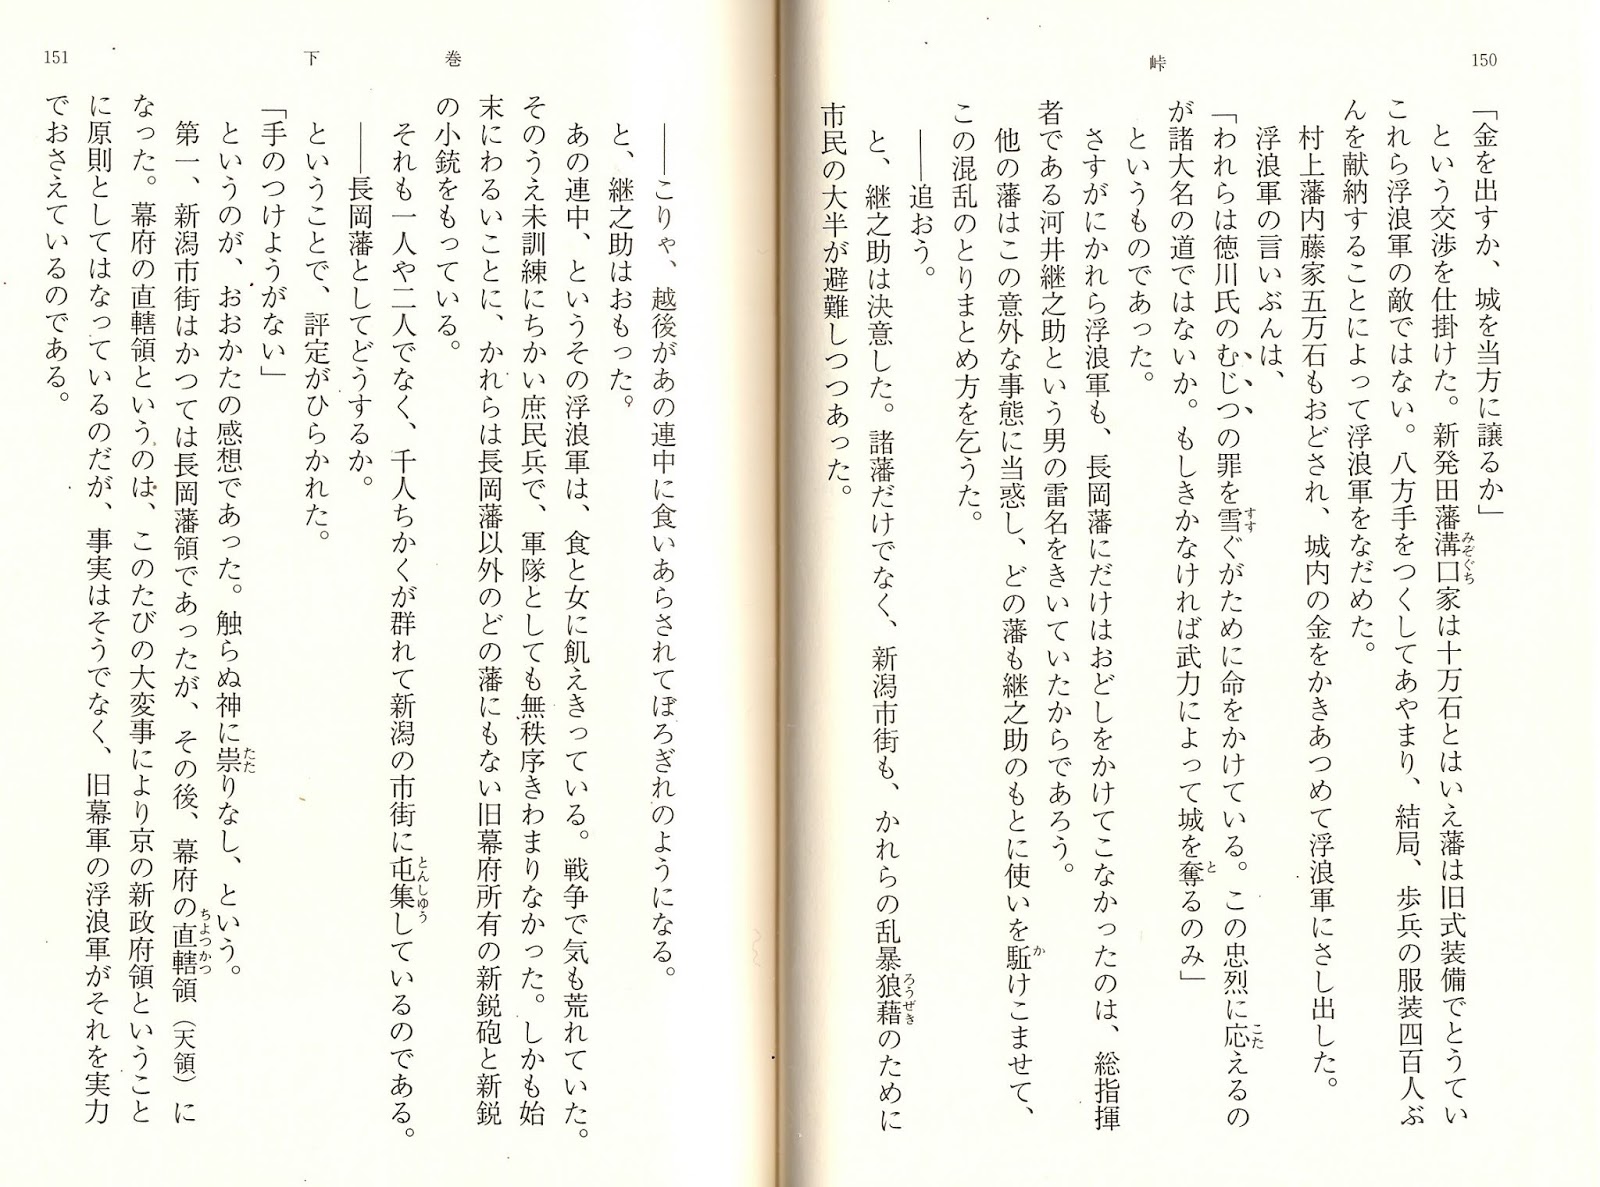 150
峠
「金を出すか、城を当方に譲るか」
という交渉を仕掛けた。新発田藩溝口家は十万石とはいえ藩は旧式装備でとうてい
これら浮浪軍の敵ではない。八方手をつくしてあやまり、結局、歩兵の服装四百人ぶ
んを献納することによって浮浪軍をなだめた。
村上藩内藤家五万石もおどされ、城内の金をかきあつめて浮浪軍にさし出した。
浮浪軍の言いぶんは、
「われらは徳川氏のむじつの罪を雪ぐがために命をかけている。この忠烈に応えるの
が諸大名の道ではないか。もしきかなければ武力によって城を奪るのみ」
というものであった。
さすがにかれら浮浪軍も、長岡藩にだけはおどしをかけてこなかったのは、総指揮
者である河井継之助という男の雷名をきいていたからであろう。
他の藩はこの意外な事態に当惑し、どの藩も継之助のもとに使いを駈けこませて、
この混乱のとりまとめ方を乞うた。
――追おう。
と、継之助は決意した。諸藩だけでなく、新潟市街も、かれらの乱暴狼藉のために
市民の大半が避難しつつあった。
151
下巻
――こりゃ、越後があの連中に食いあらされてぼろぎれのようになる。
と、継之助はおもった。
あの連中、というその浮浪軍は、食と女に飢えきっている。戦争で気も荒れていた。
そのうえ未訓練にちかい庶民兵で、軍隊としても無秩序きわまりなかった。しかも始
末にわるいことに、かれらは長岡藩以外のどの藩にもない旧幕府所有の新鋭砲と新鋭
の小銃をもっている。
それも一人や二人でなく、千人ちかくが群れて新潟の市街に屯集しているのである。
――長岡藩としてどうするか。
ということで、評定がひらかれた。
「手のつけようがない」
というのが、おおかたの感想であった。触らぬ神に祟りなし、という。
第一、新潟市街はかつては長岡藩領であったが、その後、幕府の直轄領（天領）に
なった。幕府の直轄領というのは、このたびの大変事により京の新政府領ということ
に原則としてはなっているのだが、事実はそうでなく、旧幕軍の浮浪軍がそれを実力
でおさえているのである。